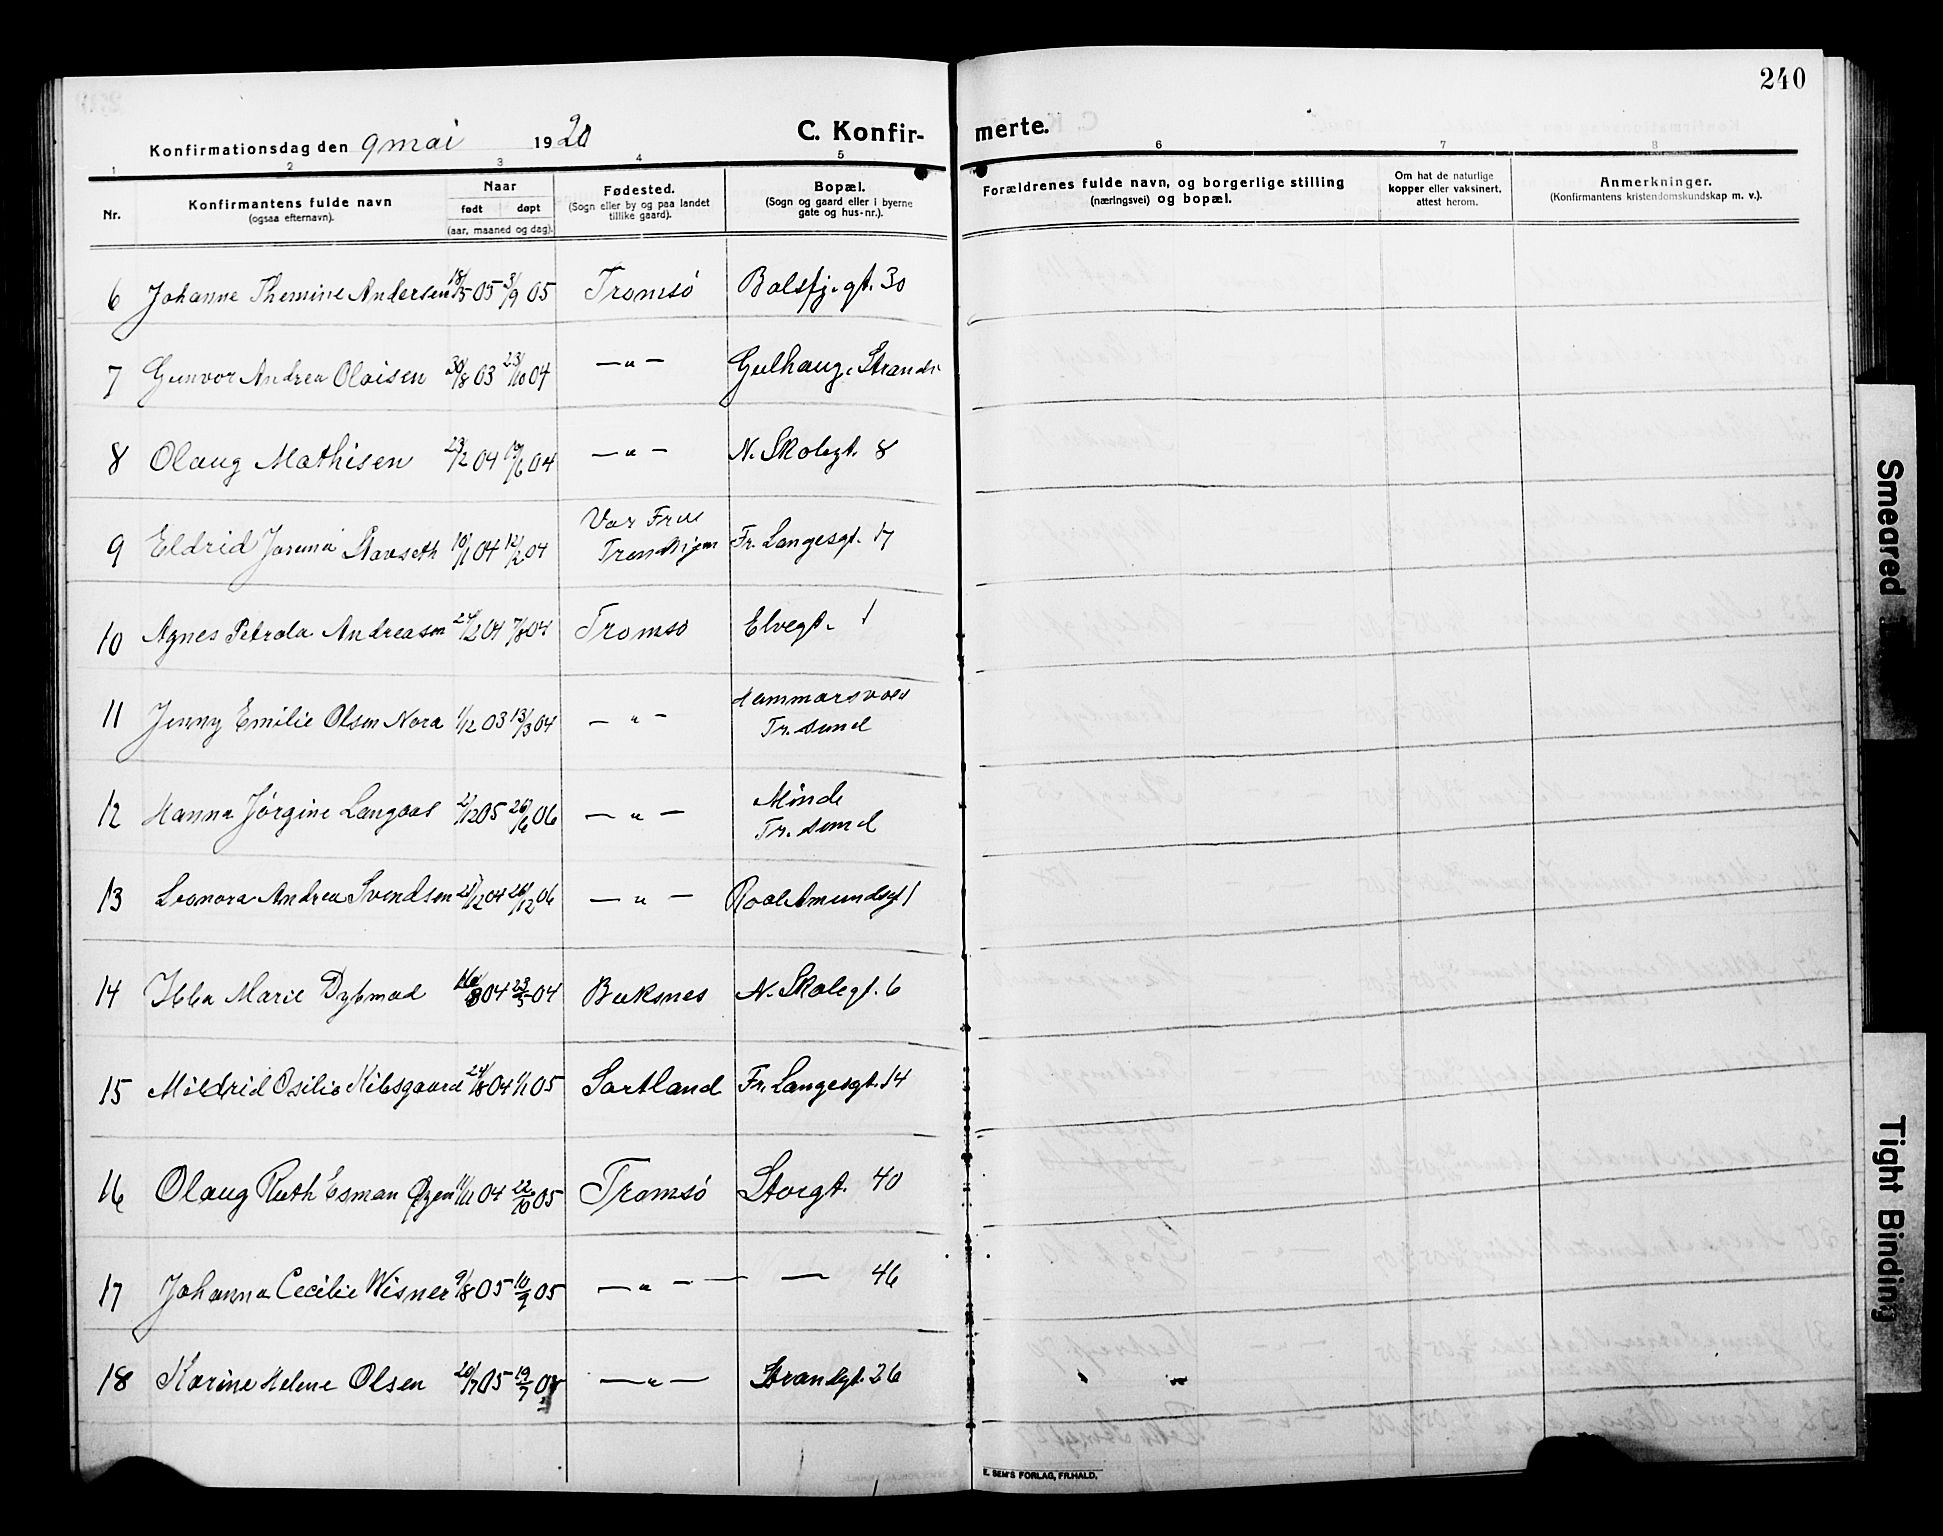 240
Konfirmationsdag den 9 mai 1920
C. Konfir-
merte.
1 2 3 4 5 6 7 8
Nr.
Konfirmantens fulde navn
(ogsaa efternavn).
Naar
født døpt
(aar, maaned og dag).
Fødested.
(Sogn eller by og paa landet
tillike gaard).
Bopæl.
(Sogn og gaard eller i byerne
gate og hus-nr.).
Forældrenes fulde navn, og borgerlige stilling
(næringsvei) og bopæl.
Om hat de naturlige
kopper eller vaksinert,
attest herom.
Anmerkninger.
(Konfirmantens kristendomskundskap m. v.).
6 Johanne Themine Andersen 18/5 05 3/9 05 Tromsø Balsfj. gt. 30
7 Gunvor Andrea Olaisen 30/8 03 23/10 04 — " — Gulhaug, Strandv
8 Olaug Mathisen 23/2 04 19/6 04 — " — N. Skolegt. 8
9 Eldrid Stavseth 10/1 04 12/2 04 Vor Frue
Trondhjem Fr. Langesgt. 17
10 Agnes Petrola Andreasen 27/2 04 7/8 04 Tromsø Elvegt. 1
11 Jenny Emilie Olsen Nora 1/12 03 13/3 04 — " —
Tr. sund
12 Hanna Jørgine Langaas 2/12 05 26/6 06 — " — Minde
Tr. sund
13 Leonora Andrea Svendsen 21/12 04 26/12 06 — " — Roal Amundsgt 1
14 Ebba Marie 16/3 04 23/5 04 Buksnes N. Skolegt. 6
15 Mildrid Osilie Kibsgaard 24/8 04 1/1 05 Sortland Fr. Langesgt. 14
16 Olaug Ruth Esman Øyen 11/11 04 22/10 05 Tromsø Storgt. 40
17 Johanna Cecilie Wisner 9/8 05 10/9 05 — " — — — 46
18 Karine Helene Olsen 20/7 05 19/7 — " — Strandgt. 26
E. SEM'S FORLAG, FR.HALD.
Smeared
Tight Binding